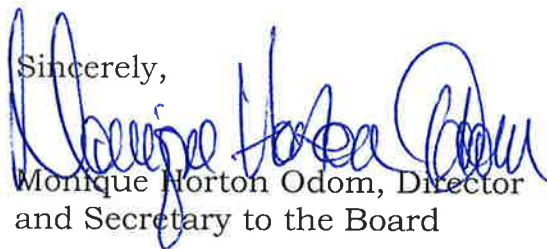 Sincerely,
Monique Horton Odom
Monique Horton Odom, Director
and Secretary to the Board